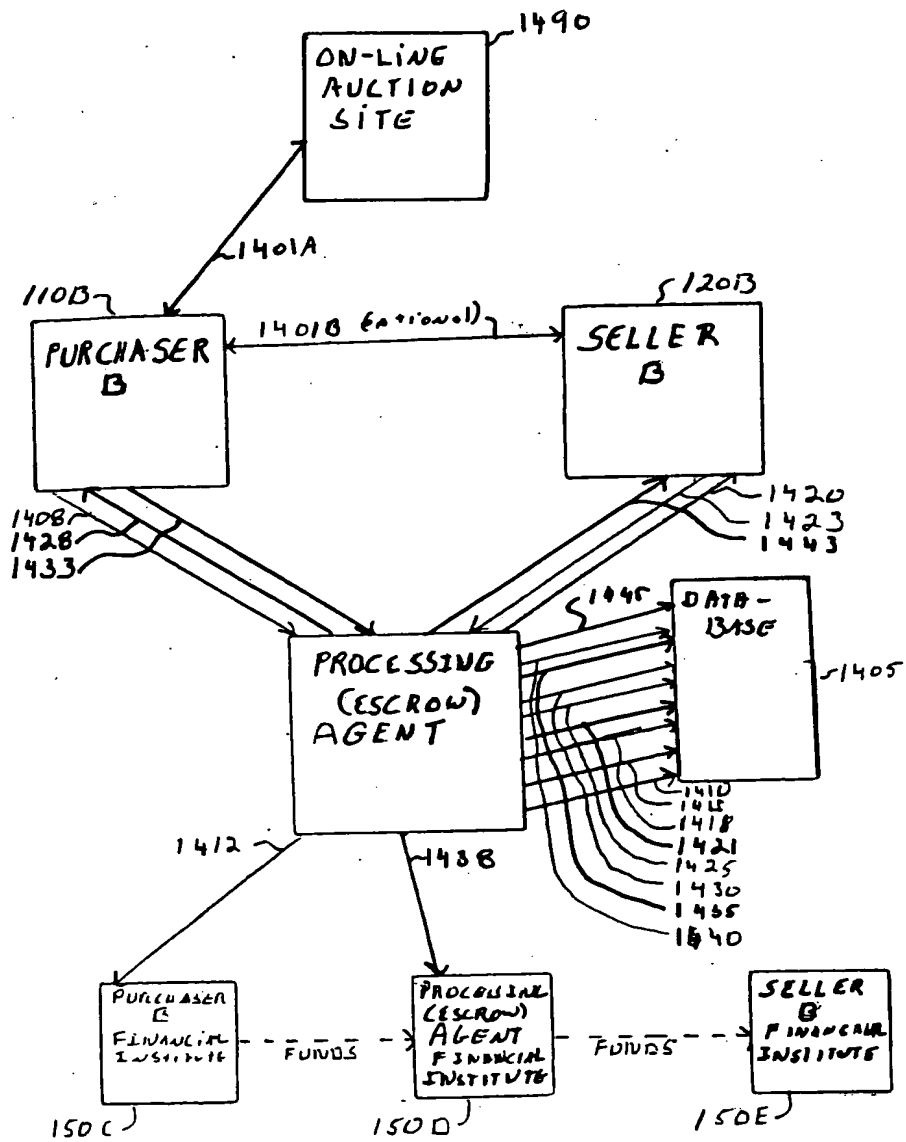 1490
ON-LINE
AUCTION
SITE
1401A
110B
120B
1401B (optional)
PURCHASER
B
SELLER
B
1408
1428
1433
1420
1423
1443
1445
DATA-
BASE
1405
PROCESSING
(ESCROW)
AGENT
1410
1415
1418
1421
1425
1430
1435
1440
1412
1438
PURCHASER
B
FINANCIAL
INSTITUTE
FUNDS
PROCESSING
(ESCROW)
AGENT
FINANCIAL
INSTITUTE
FUNDS
SELLER
B
FINANCIAL
INSTITUTE
150C
150D
150E